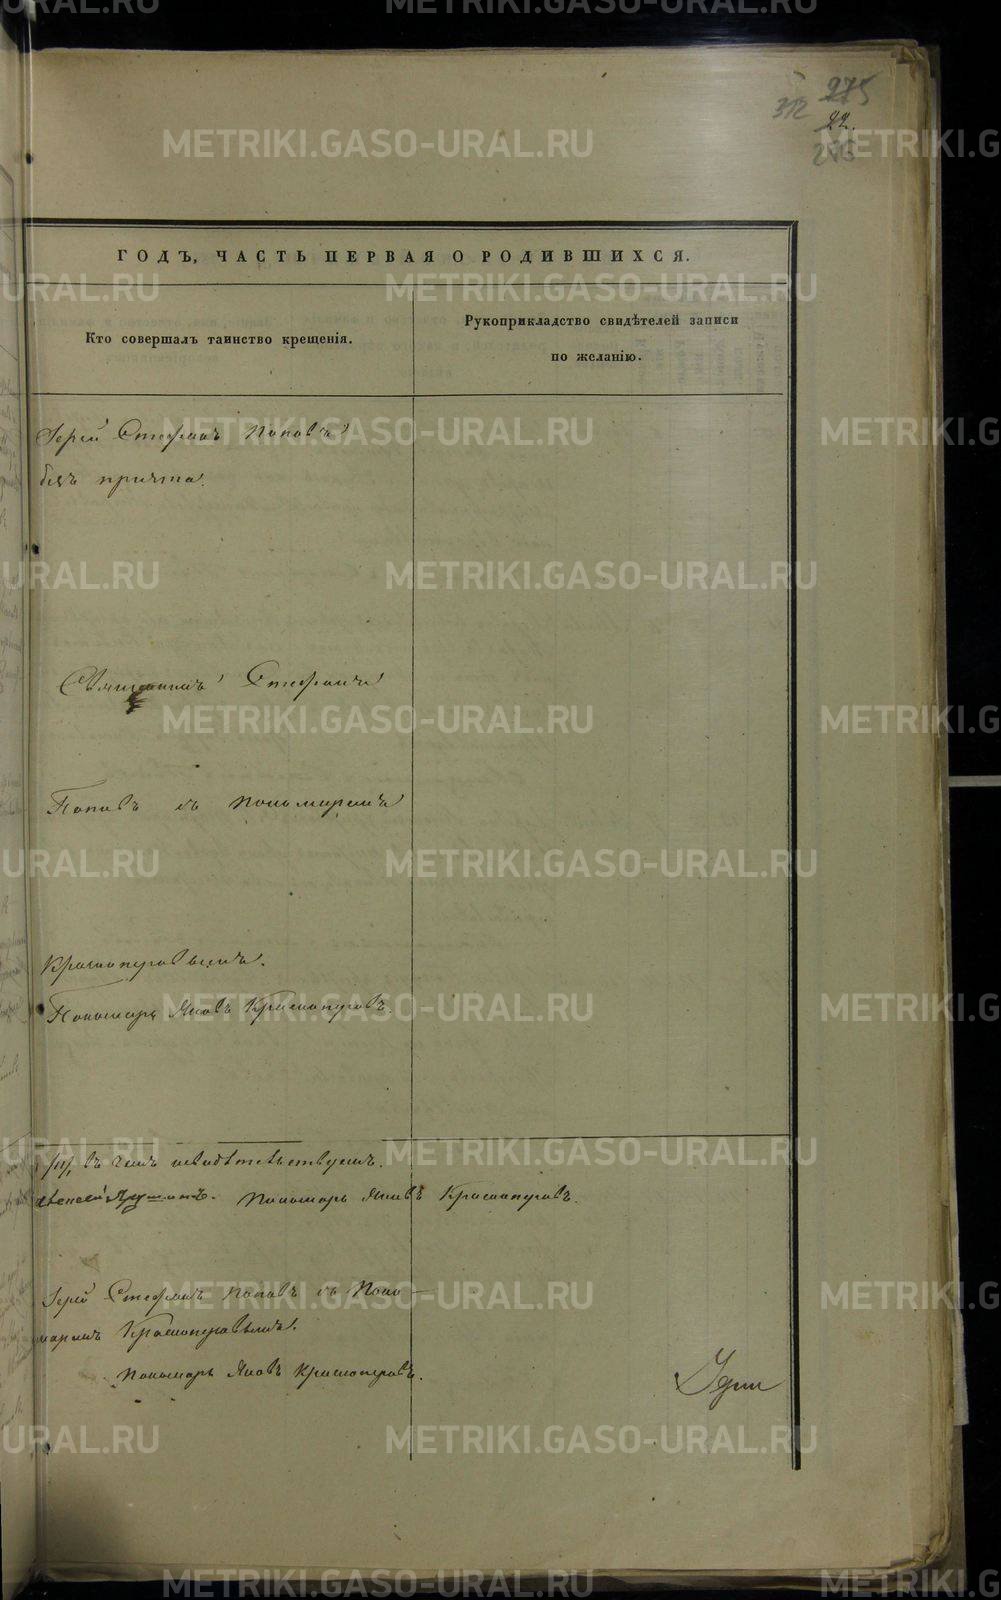 METRIKI.GASO-URAL.RU
275
312
22.
ГОДЪ, ЧАСТЬ ПЕРВАЯ О РОДИВШИХСЯ.
Кто совершалъ таинство крещенія.
Рукоприкладство свидѣтелей записи
по желанію.
Іерей Стефанъ Поповъ
безъ причта.
Священникъ Стефанъ
Поповъ съ пономаремъ
Красноперовымъ.
Пономарь Яковъ Красноперовъ.
въ чемъ и свидѣтельствуемъ.
Пономарь Яковъ Красноперовъ.
Іерей Стефанъ Поповъ съ Поно-
маремъ Красноперовымъ.
Пономарь Яковъ Красноперовъ.